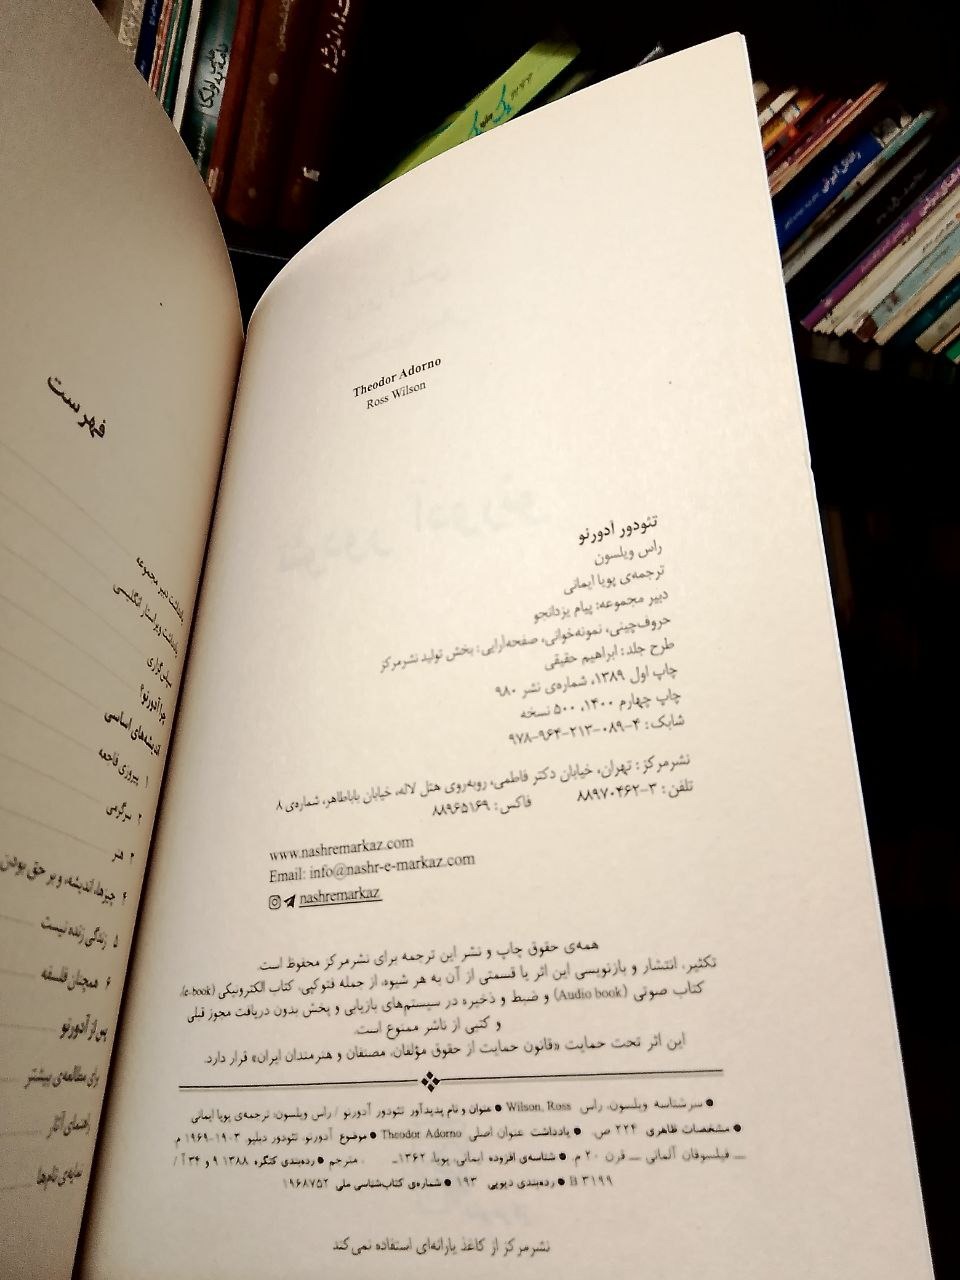 Theodor Adorno
Ross Wilson
تئودور آدورنو
راس ویلسون
ترجمه‌ی پویا ایمانی
دبیر مجموعه: پیام یزدانجو
حروف‌چینی، نمونه‌خوانی، صفحه‌آرایی: بخش تولید نشرمرکز
طرح جلد: ابراهیم حقیقی
چاپ اول ۱۳۸۹، شماره‌ی نشر ۹۸۰
چاپ چهارم ۱۴۰۰، ۵۰۰ نسخه
شابک: ۴-۰۸۹-۲۱۳-۹۶۴-۹۷۸
نشرمرکز: تهران، خیابان دکتر فاطمی، روبه‌روی هتل لاله، خیابان باباطاهر، شماره‌ی ۸
تلفن: ۳-۸۸۹۷۰۴۶۲ فاکس: ۸۸۹۶۵۱۶۹
www.nashremarkaz.com
Email: info@nashr-e-markaz.com
nashremarkaz
همه‌ی حقوق چاپ و نشر این ترجمه برای نشرمرکز محفوظ است.
تکثیر، انتشار و بازنویسی این اثر یا قسمتی از آن به هر شیوه، از جمله فتوکپی، کتاب الکترونیکی (e-book)،
کتاب صوتی (Audio book) و ضبط و ذخیره در سیستم‌های بازیابی و پخش بدون دریافت مجوز قبلی
و کتبی از ناشر ممنوع است.
این اثر تحت حمایت «قانون حمایت از حقوق مؤلفان، مصنفان و هنرمندان ایران» قرار دارد.
● سرشناسه ویلسون، راس Wilson, Ross ● عنوان و نام پدیدآور تئودور آدورنو / راس ویلسون، ترجمه‌ی پویا ایمانی
● مشخصات ظاهری ۲۲۴ ص. ● یادداشت عنوان اصلی Theodor Adorno ● موضوع آدورنو، تئودور دبلیو ۱۹۰۳-۱۹۶۹ م
ـ فیلسوفان آلمانی ـ قرن ۲۰ م. ● شناسه‌ی افزوده ایمانی، پویا، ۱۳۶۲ـ ، مترجم ● رده‌بندی کنگره ۱۳۸۸ ۹ و ۳۴ آ /
B ۳۱۹۹ ● رده‌بندی دیویی ۱۹۳ ● شماره‌ی کتاب‌شناسی ملی ۱۹۶۸۷۵۲
نشرمرکز از کاغذ یارانه‌ای استفاده نمی‌کند
فهرست
یادداشت دبیر مجموعه
یادداشت ویراستار انگلیسی
سپاس‌گزاری
چرا آدورنو؟
اندیشه‌های اساسی
۱ پیروزی فاجعه
۲ سرگرمی
۳ هنر
۴ چیزها، اندیشه، و بر حق بودن
۵ زندگی زنده نیست
۶ همچنان فلسفه
پس از آدورنو
برای مطالعه‌ی بیشتر
راهنمای آثار
نمایه‌ی نام‌ها